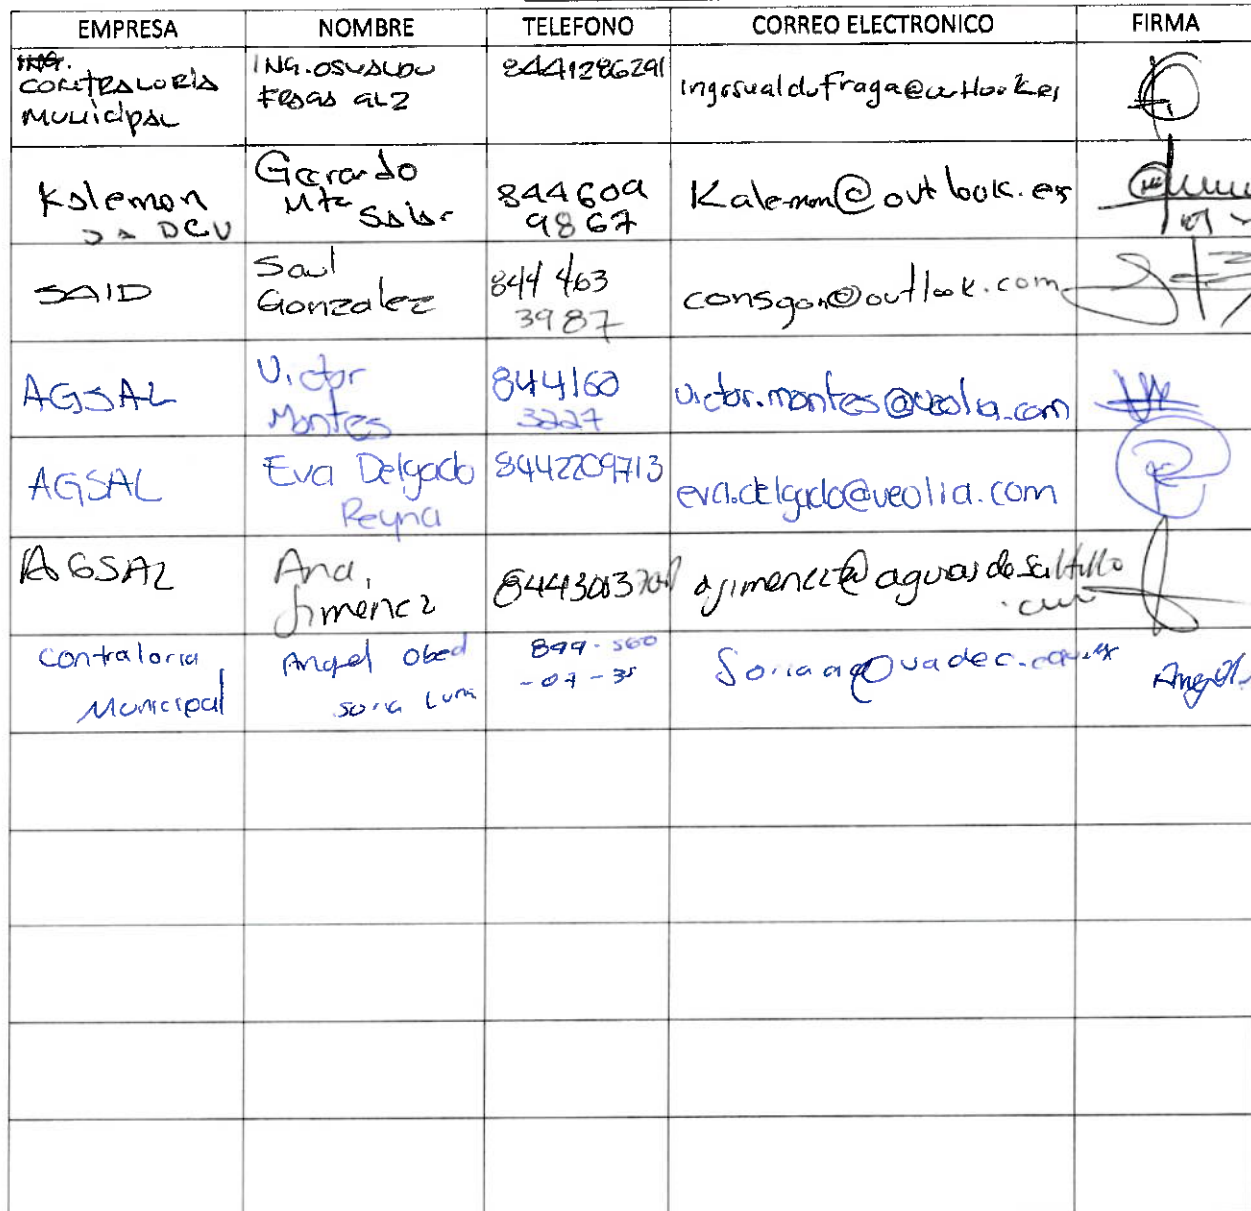 EMPRESA NOMBRE TELEFONO CORREO ELECTRONICO FIRMA
CONTRALORIA MUNICIPAL
ING. OSVALDO FRAGA GLZ
8441286291
ingosvaldofraga@outlook.es
Kalemon
DCV
Gerardo
Mtz Salar
844609
9867
Kalemon@outlook.es
SAID
Saul
Gonzalez
844 463
3987
consgon@outlook.com
AGSAL
Victor
Montes
844160
3227
victor.montes@veolia.com
AGSAL
Eva Delgado
Reyna
8442209713
eva.delgado@veolia.com
AGSAL
Ana,
Jiménez
ajimenez@aguasdesaltillo
.com
Contraloria
Municipal
Angel Obed
Soria Luna
899-560
-07-35
Angel